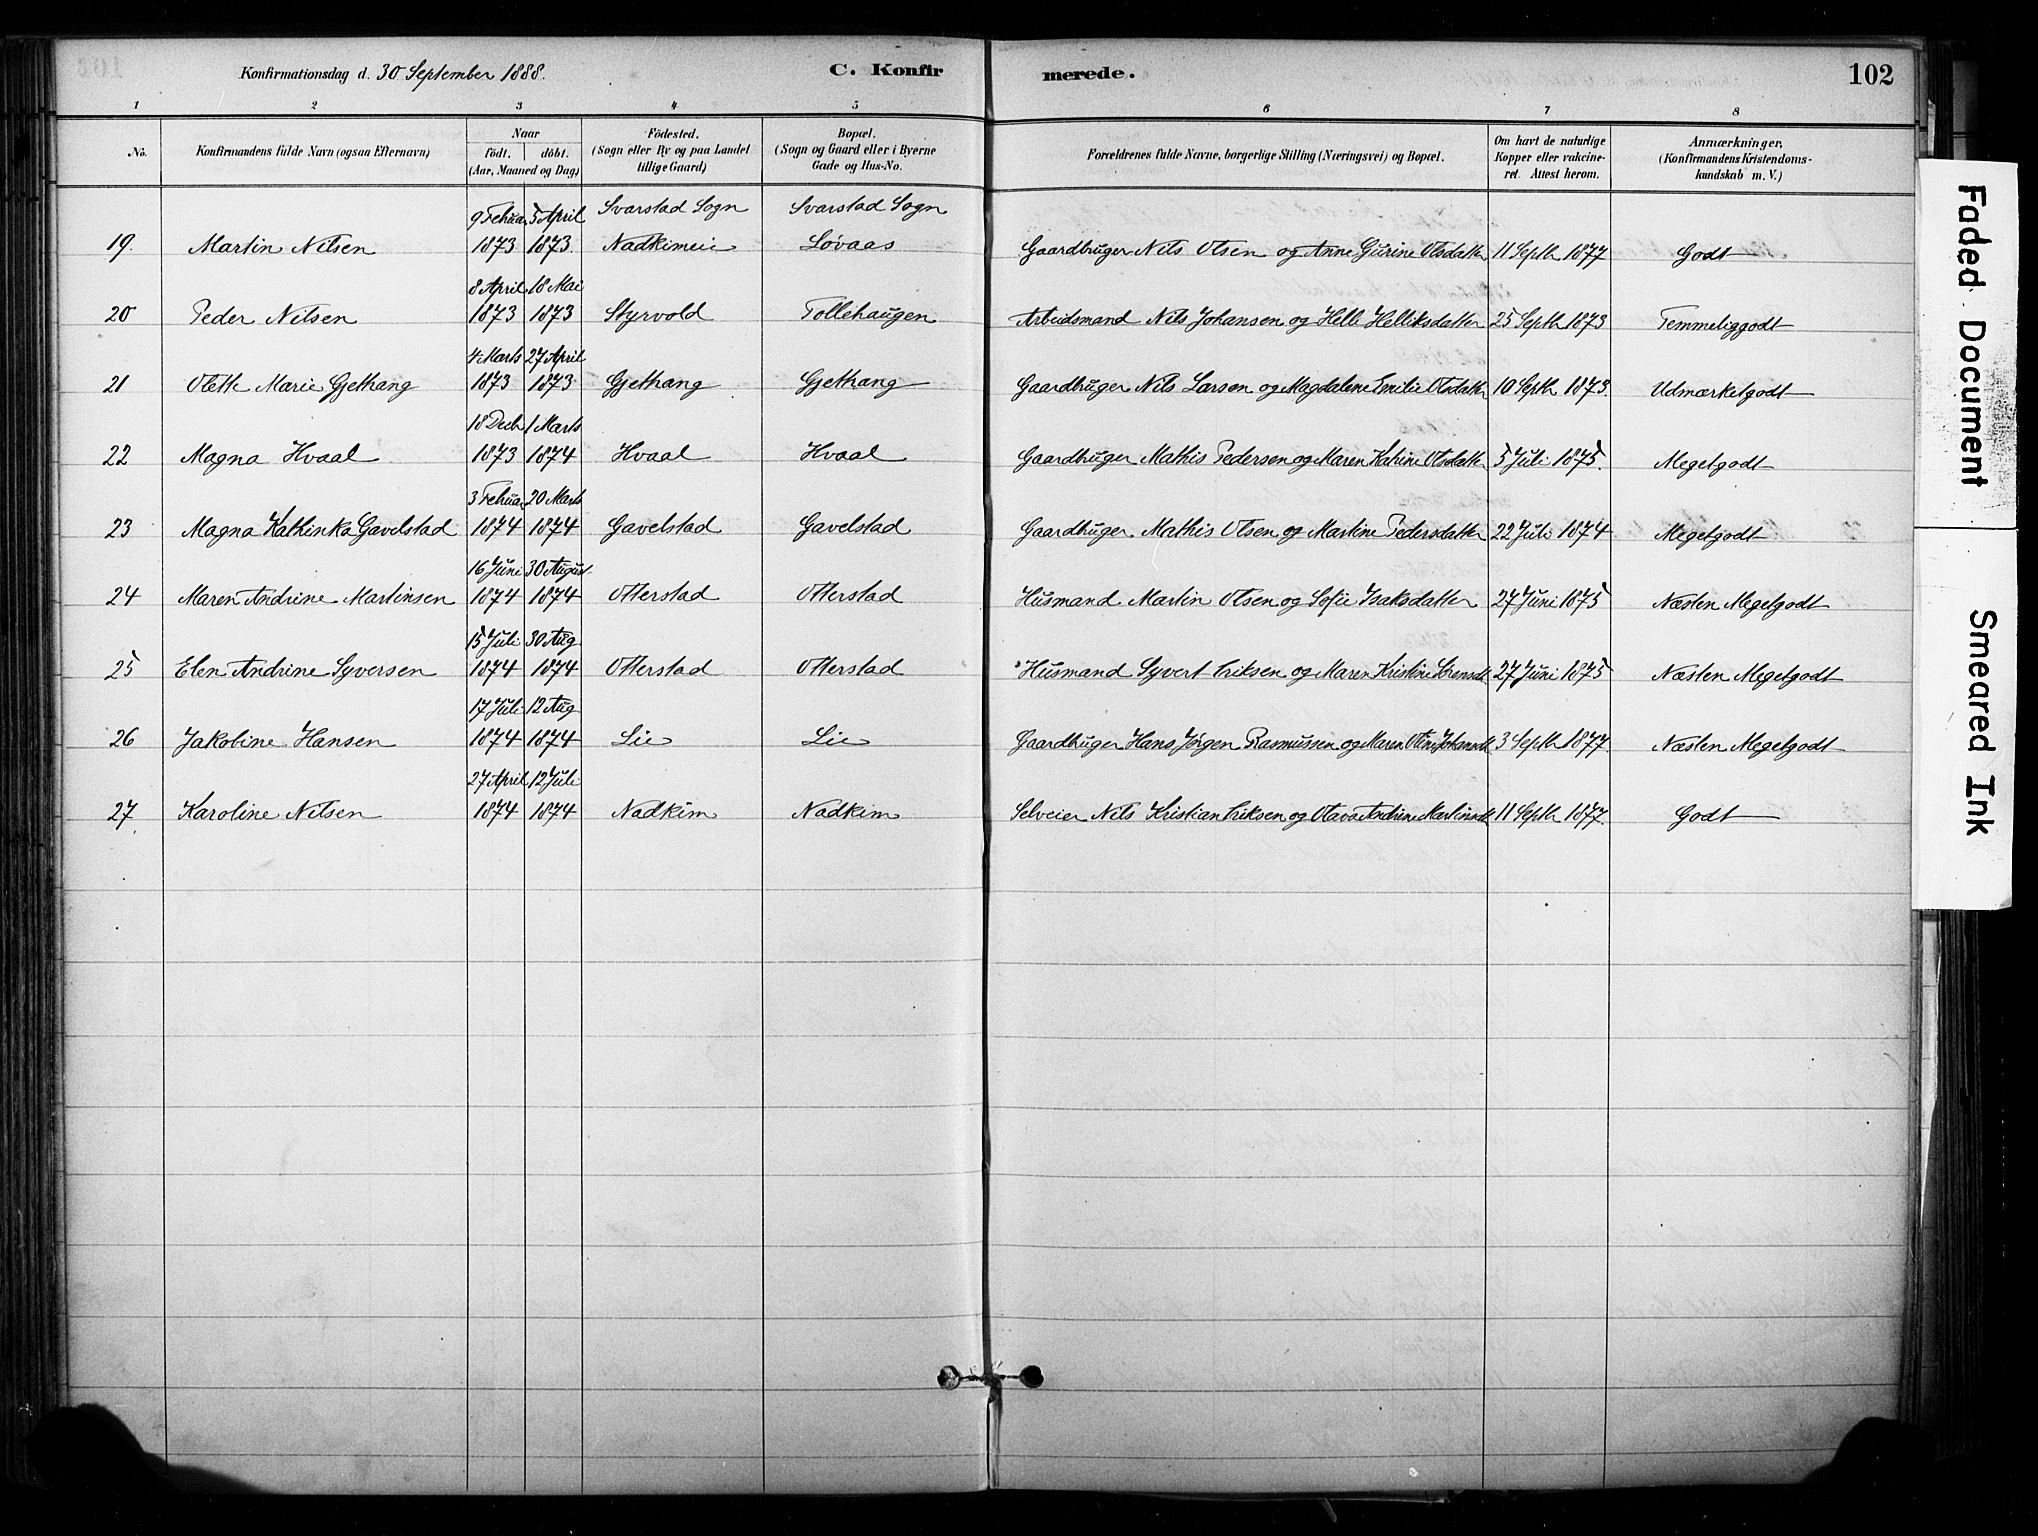 Konfirmationsdag d. 30 September 1888. C. Konfirmerede. 102
1 2 3 4 5 6 7 8
No. Konfirmandens fulde Navn (ogsaa Efternavn) Naar födt. döbt. (Aar, Maaned og Dag) Födested. (Sogn eller By og paa Landet tillige Gaard) Bopæl. (Sogn og Gaard eller i Byerne Gade og Hus-No. Forældrenes fulde Navne, borgerlige Stilling (Næringsvei) og Bopæl. Om havt de naturlige Kopper eller vakcineret. Attest herom. Anmærkninger, (Konfirmandens Kristendomskundskab m. V.)
9 Febuar 5 April Svarstad Sogn Svarstad Sogn
19. Martin Nilsen 1873 1873 Nadkimeie Lövaas Gaardbruger Nils Olsen og Anne Gurine Olsdatter 11 Septb 1877 Godt
8 April 18 Mai
20 Peder Nilsen 1873 1873 Styrvold Tollehaugen Arbeidsmand Nils Johansen og Helle Helliksdatter 25 Septb 1873 Temmeliggodt
4 Marts 27 April
21 Olette Marie Gjethang 1873 1873 Gjethang Gjethang Gaardbruger Nils Larsen og Magdalene Emilie Olsdatter 10 Septb 1873. Udmærketgodt
18 Decb 1 Marts
22 Magna Hvaal 1873 1874 Hvaal Hvaal Gaardbruger Mathis Pedersen og Maren Katrine Olsdatter 5 Juli 1875. Megetgodt
3 Febuar 20 Marts
23 Magna Kathinka Gavelstad 1874 1874 Gavelstad Gavelstad Gaardbuger Mathis Olsen og Martine Pedersdatter 22 Juli 1874 Megetgodt
16 Juni 30 August
24 Maren Andrine Martinsen 1874 1874 Otterstad Otterstad Husmand Martin Olsen og Sofie Isaksdatter 27 Juni 1875 Næsten Megetgodt
15 Juli 30 Aug
25 Elen Andrine Syversen 1874 1874 Otterstad Otterstad Husmand Syvert Eriksen og Maren Kristine Sörensdt 27 Juni 1875 Næsten Megetgodt
17 Juli 12 Aug
26 Jakobine Hansen 1874 1874 Lie Lie Gaardbuger Hans Jörgen Rasmussen og Maren Oline Johansdt 3 Septb 1877 Næsten Megetgodt
27 April 12 Juli
27. Karoline Nilsen 1874 1874 Nadkim Nadkim Selveier Nils Kristian Eriksen og Olava Andrine Martinsdt 11 Septb 1877. Godt
Faded Document
Smeared Ink